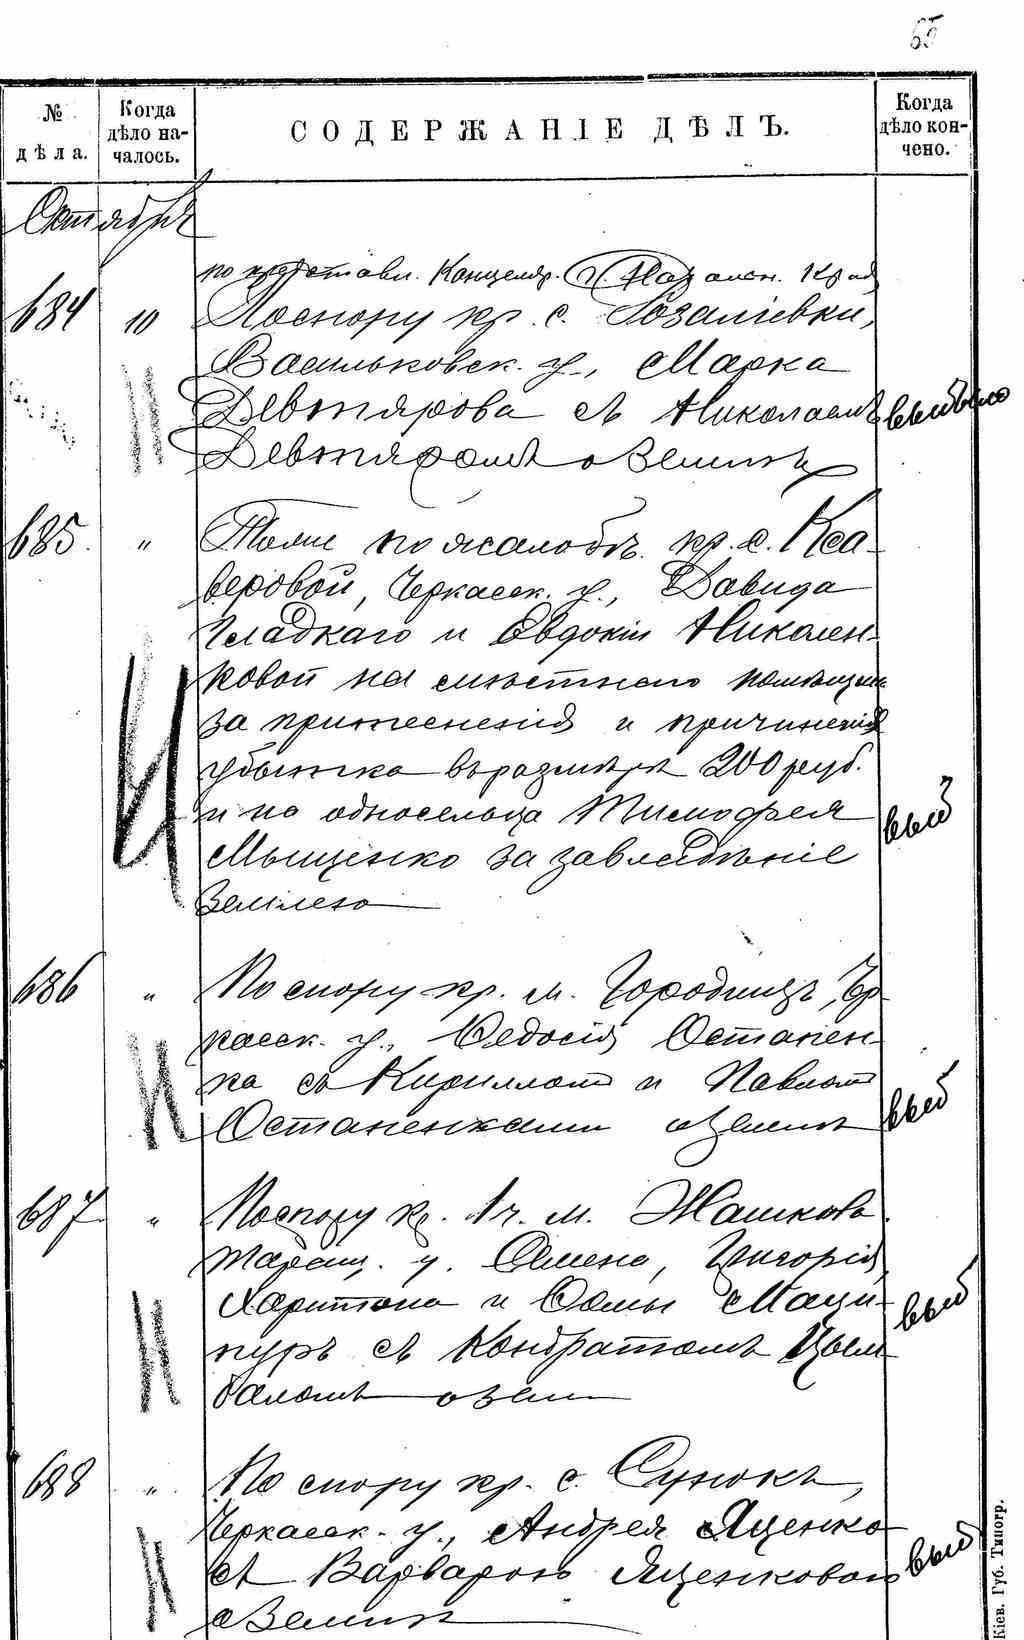 65
№ дѣла.
Когда дѣло началось.
СОДЕРЖАНІЕ ДѢЛЪ.
Когда дѣло кончено.
Октябрь
по представл. Канцеляр. Г. Нач края
684 10 По спору кр. с. Розаліевки,
Васильковск. у., Марка
Девтярова съ Николаемъ выбыло
Девтяромъ о земли
685. " Тоже по жалобѣ кр. с. Кса-
веровой, Черкасск. у., Давида
Гладкаго и Евдокіи Николен-
ковой на мѣстнаго помѣщика
за притесненія и причиненія
убытка въ размѣрѣ 200 руб.
и на односельца Тимофея выб
Мыценко за завладѣніе
землею
686 " По спору кр. м. Городища, Чер-
касск. у., Федосія Остапен-
ка съ Кириллом и Павлом
Остапенками о земли выб
687 " По спору кр. 1 ч. м. Жашкова
Таращ. у. Семена, Григорія,
Харитона и Фомы Маци- выб
пуръ съ Кондратомъ Цым
баломъ о зем
688 " По спору кр. с. Сунокъ,
Черкасск. у., Андрея Яценко
съ Варварою Яценковою выб
о земли
Кіев. Губ. Типогр.